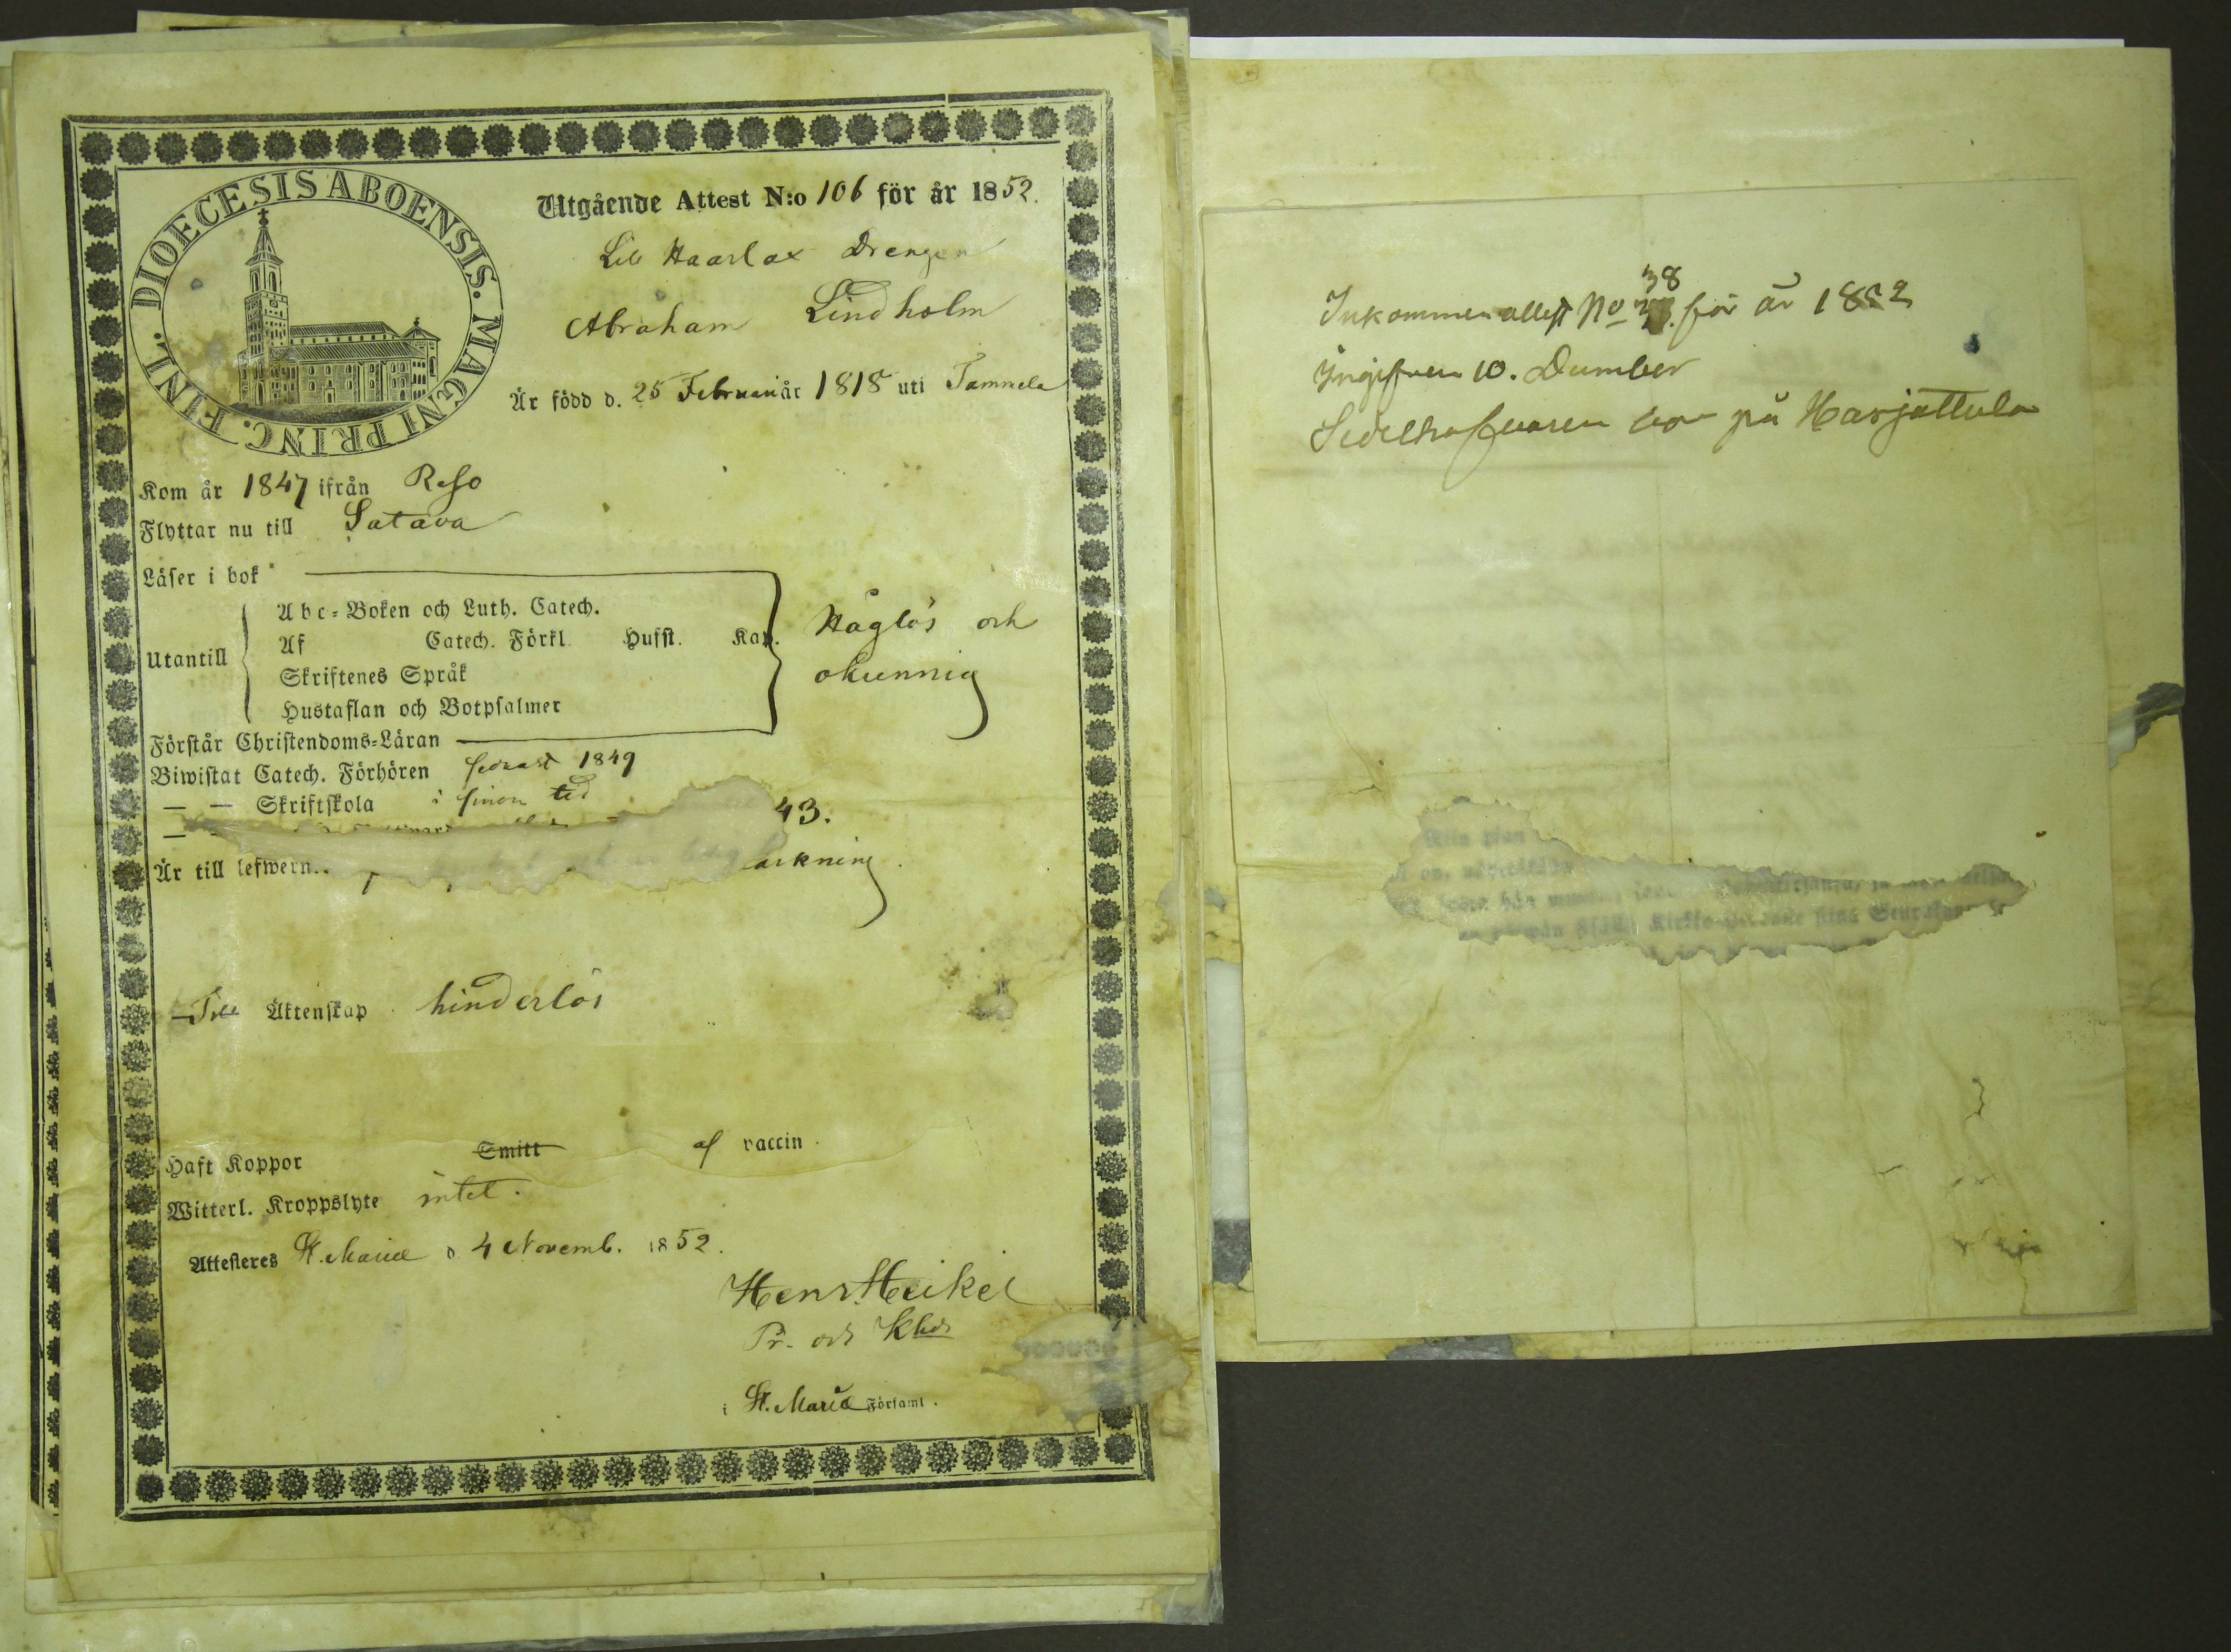 DIOECESIS ABOENSIS. MAGNI PRINC. FINL.
Utgående Attest N:o 106 för år 1852.
Lill Haarlax Drengen
Abraham Lindholm
Är född d. 25 Februari år 1818 uti Tammela
Kom år 1847 ifrån Reso
Flyttar nu till Satava
Läser i bok
Abc-Boken och Luth. Catech.
Af Catech. Förkl. Husst. Kap.
Utantill
Skriftenes Språk
Hustaflan och Botpsalmer
Håglös och
okunnig
Förstår Christendoms-Läran
Biwistat Catech. Förhören sednast 1849
— — Skriftskola i sinom tid
43.
Är till lefwern
arkning.
Till Äktenskap hinderlös
Haft Koppor Smitt af vaccin.
Witterl. Kroppslyte intet.
Attesteres St. Mariæ d. 4 Novemb. 1852.
Henr. Heikel
Pr. och Khde
i St. Mariæ Församl.
Inkommen attest No 38 för år 1852
Ingifven 10. December
Sedelhafvaren bor på Harjattula